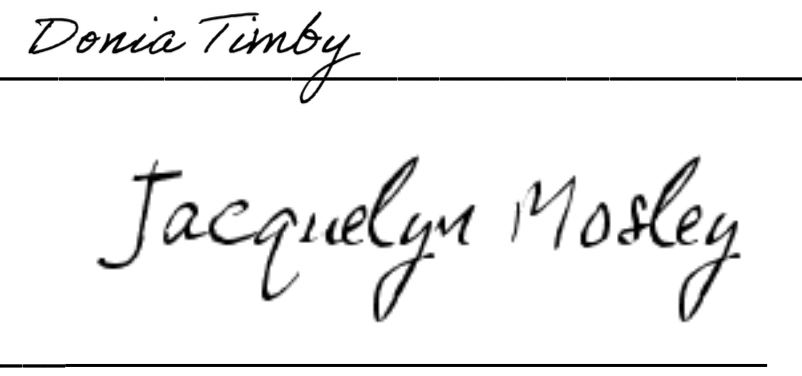 Donia Timby
Jacquelyn Mosley